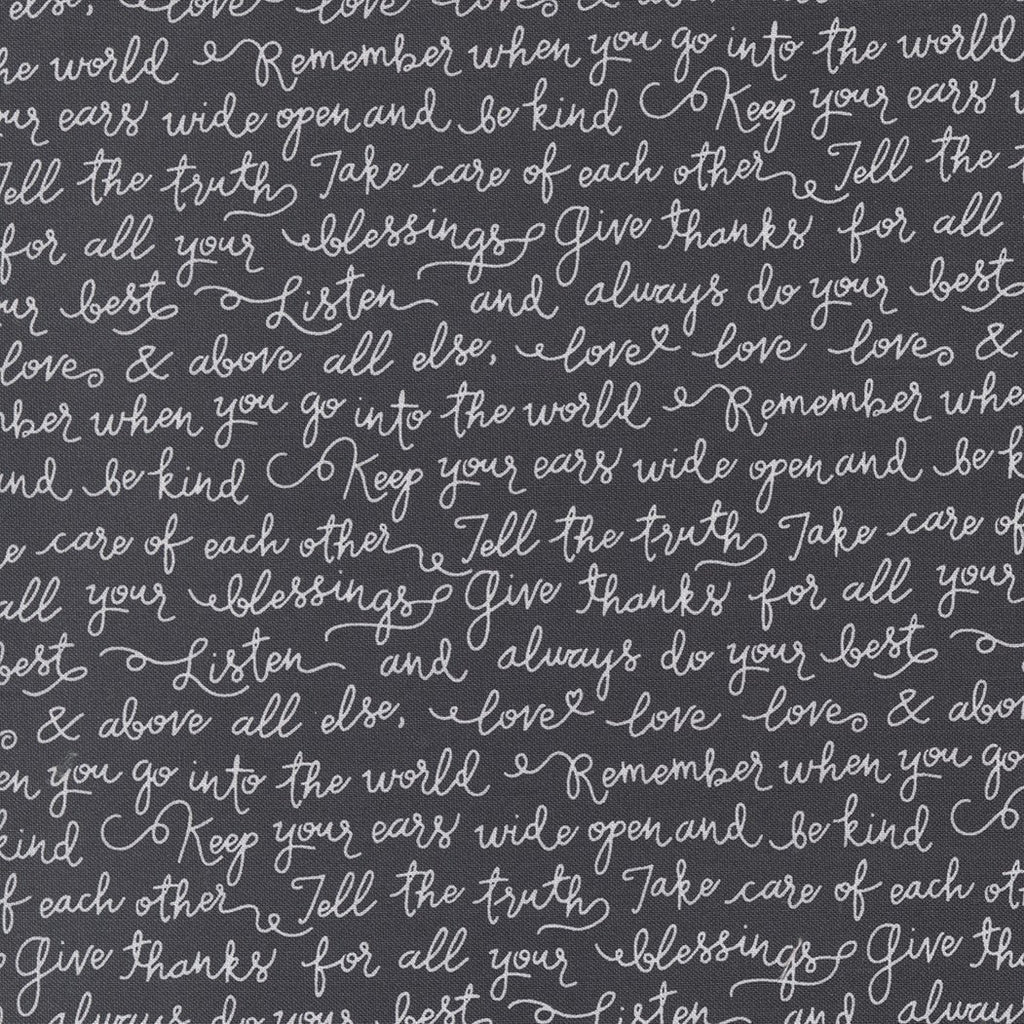 else, love love love & above all
he world Remember when you go into the world
ur ears wide open and be kind Keep your ears
Tell the truth Take care of each other Tell the
for all your blessings Give thanks for all
ur best Listen and always do your best
love & above all else, love love love &
ber when you go into the world Remember whe
and be kind Keep your ears wide open and be k
e care of each other Tell the truth Take care of
all your blessings Give thanks for all your
best Listen and always do your best
& above all else, love love love & abo
en you go into the world Remember when you go
kind Keep your ears wide open and be kind
of each other Tell the truth Take care of each ot
Give thanks for all your blessings Give tha
always do your best Listen and always